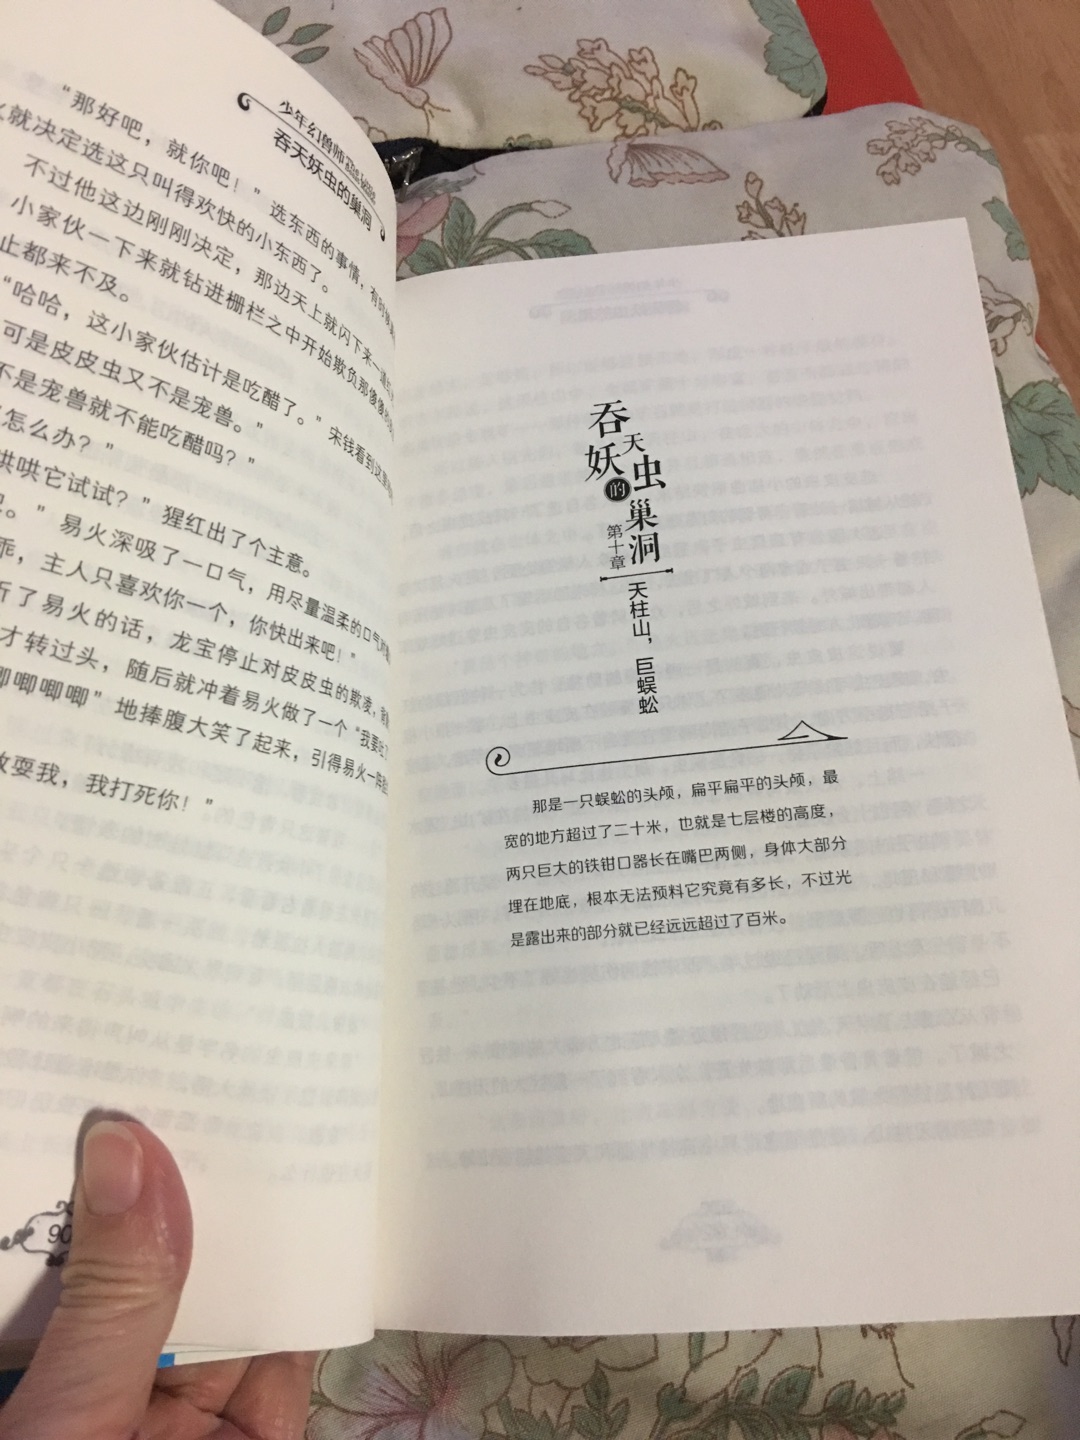 少年幻兽师
吞天妖虫的巢洞
“那好吧，就你吧！”选东西的事情，有时候
就决定选这只叫得欢快的小东西了。
不过他这边刚刚决定，那边天上就闪下来一道
小家伙一下来就钻进栅栏之中开始欺负那傻傻的
止都来不及。
“哈哈，这小家伙估计是吃醋了。”宋钱看到这里
可是皮皮虫又不是宠兽。”
不是宠兽就不能吃醋吗？”
怎么办？”
哄哄它试试？”猩红出了个主意。
。”易火深吸了一口气，用尽量温柔的口气
乖，主人只喜欢你一个，你快出来吧！”
听了易火的话，龙宝停止对皮皮虫的欺凌，
才转过头，随后就冲着易火做了一个“我要
唧唧唧唧”地捧腹大笑了起来，引得易火一阵
敢耍我，我打死你！”
90
吞天妖虫的巢洞
第十章
天柱山，巨蜈蚣
那是一只蜈蚣的头颅，扁平扁平的头颅，最
宽的地方超过了二十米，也就是七层楼的高度，
两只巨大的铁钳口器长在嘴巴两侧，身体大部分
埋在地底，根本无法预料它究竟有多长，不过光
是露出来的部分就已经远远超过了百米。